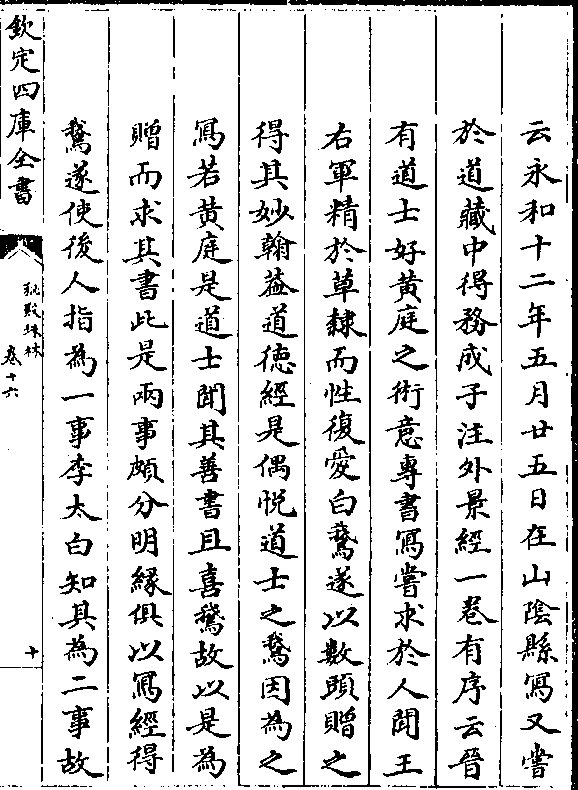 云永和十二年五月廿五日在山陰縣寫又嘗
於道藏中得務成子注外景經一卷有序云晉
有道士好黃庭之術意專書寫嘗求於人聞王
右軍精於草隸而性復愛白鵞遂以數頭贈之
得其妙翰葢道德經是偶悅道士之鵞因為之
寫若黃庭是道士聞其善書且喜鵞故以是為
贈而求其書此是兩事頗分明緣俱以寫經得
鵞遂使後人指為一事李太白知其為二事故
欽定四庫全書
秘殿珠林
卷十六
十